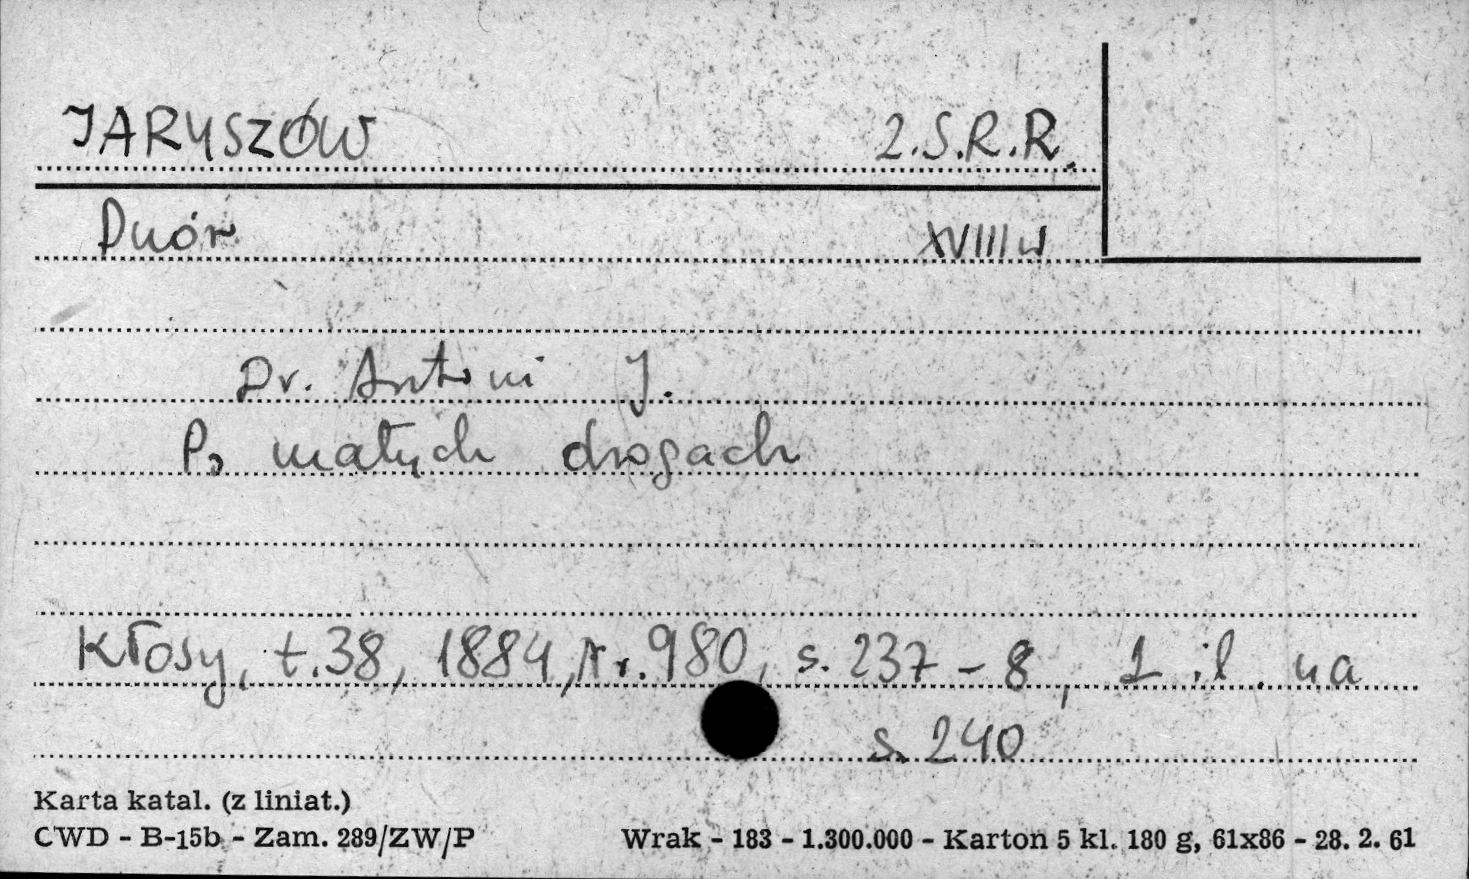 JARYSZÓW 2.S.R.R.
Dwór XVIII w
Dr. Antoni J.
Po małych drogach
Kłosy, t.38, 1884, Nr. 980, s. 237 – 8, 1 il. na
s. 240
Karta katal. (z liniat.)
CWD - B-15b - Zam. 289/ZW/P Wrak - 183 - 1.300.000 - Karton 5 kl. 180 g, 61x86 - 28. 2. 61